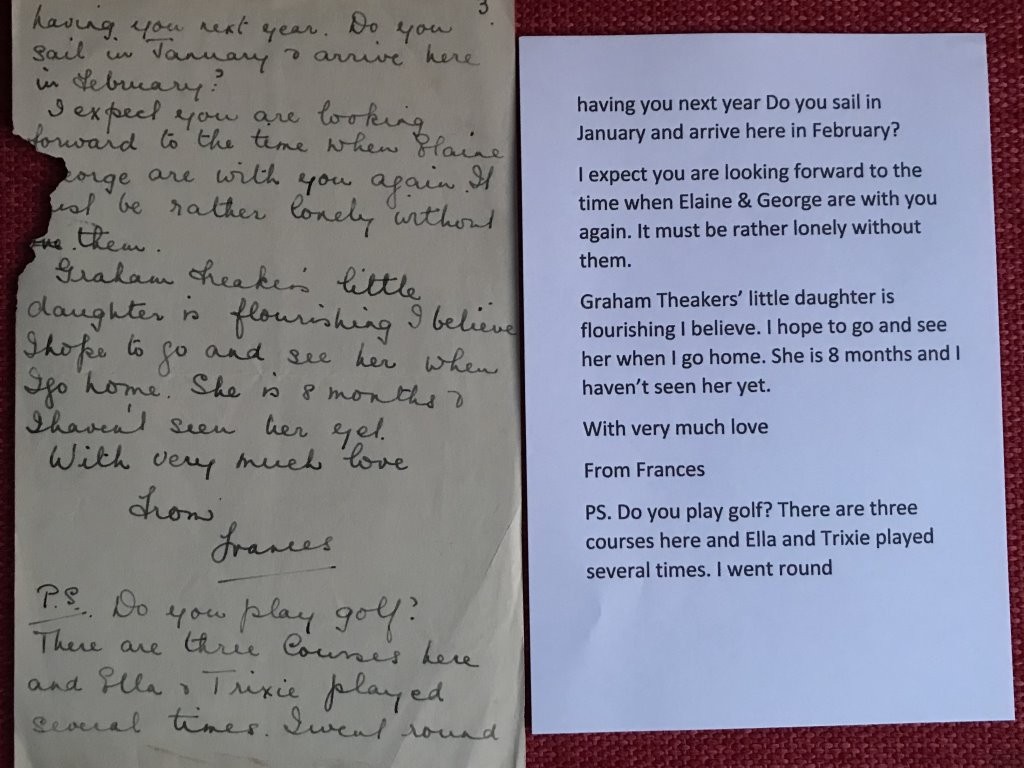 3.
having you next year. Do you
sail in January & arrive here
in February?
I expect you are looking
forward to the time when Elaine
eorge are with you again. It
ust be rather lonely without
them.
Graham Theaker's little
daughter is flourishing I believe
I hope to go and see her when
I go home. She is 8 months &
I haven't seen her yet.
With very much love
From
Frances
P.S. Do you play golf?
There are three Courses here
and Ella & Trixie played
several times. I went round
having you next year Do you sail in
January and arrive here in February?
I expect you are looking forward to the
time when Elaine & George are with you
again. It must be rather lonely without
them.
Graham Theakers’ little daughter is
flourishing I believe. I hope to go and see
her when I go home. She is 8 months and I
haven’t seen her yet.
With very much love
From Frances
PS. Do you play golf? There are three
courses here and Ella and Trixie played
several times. I went round